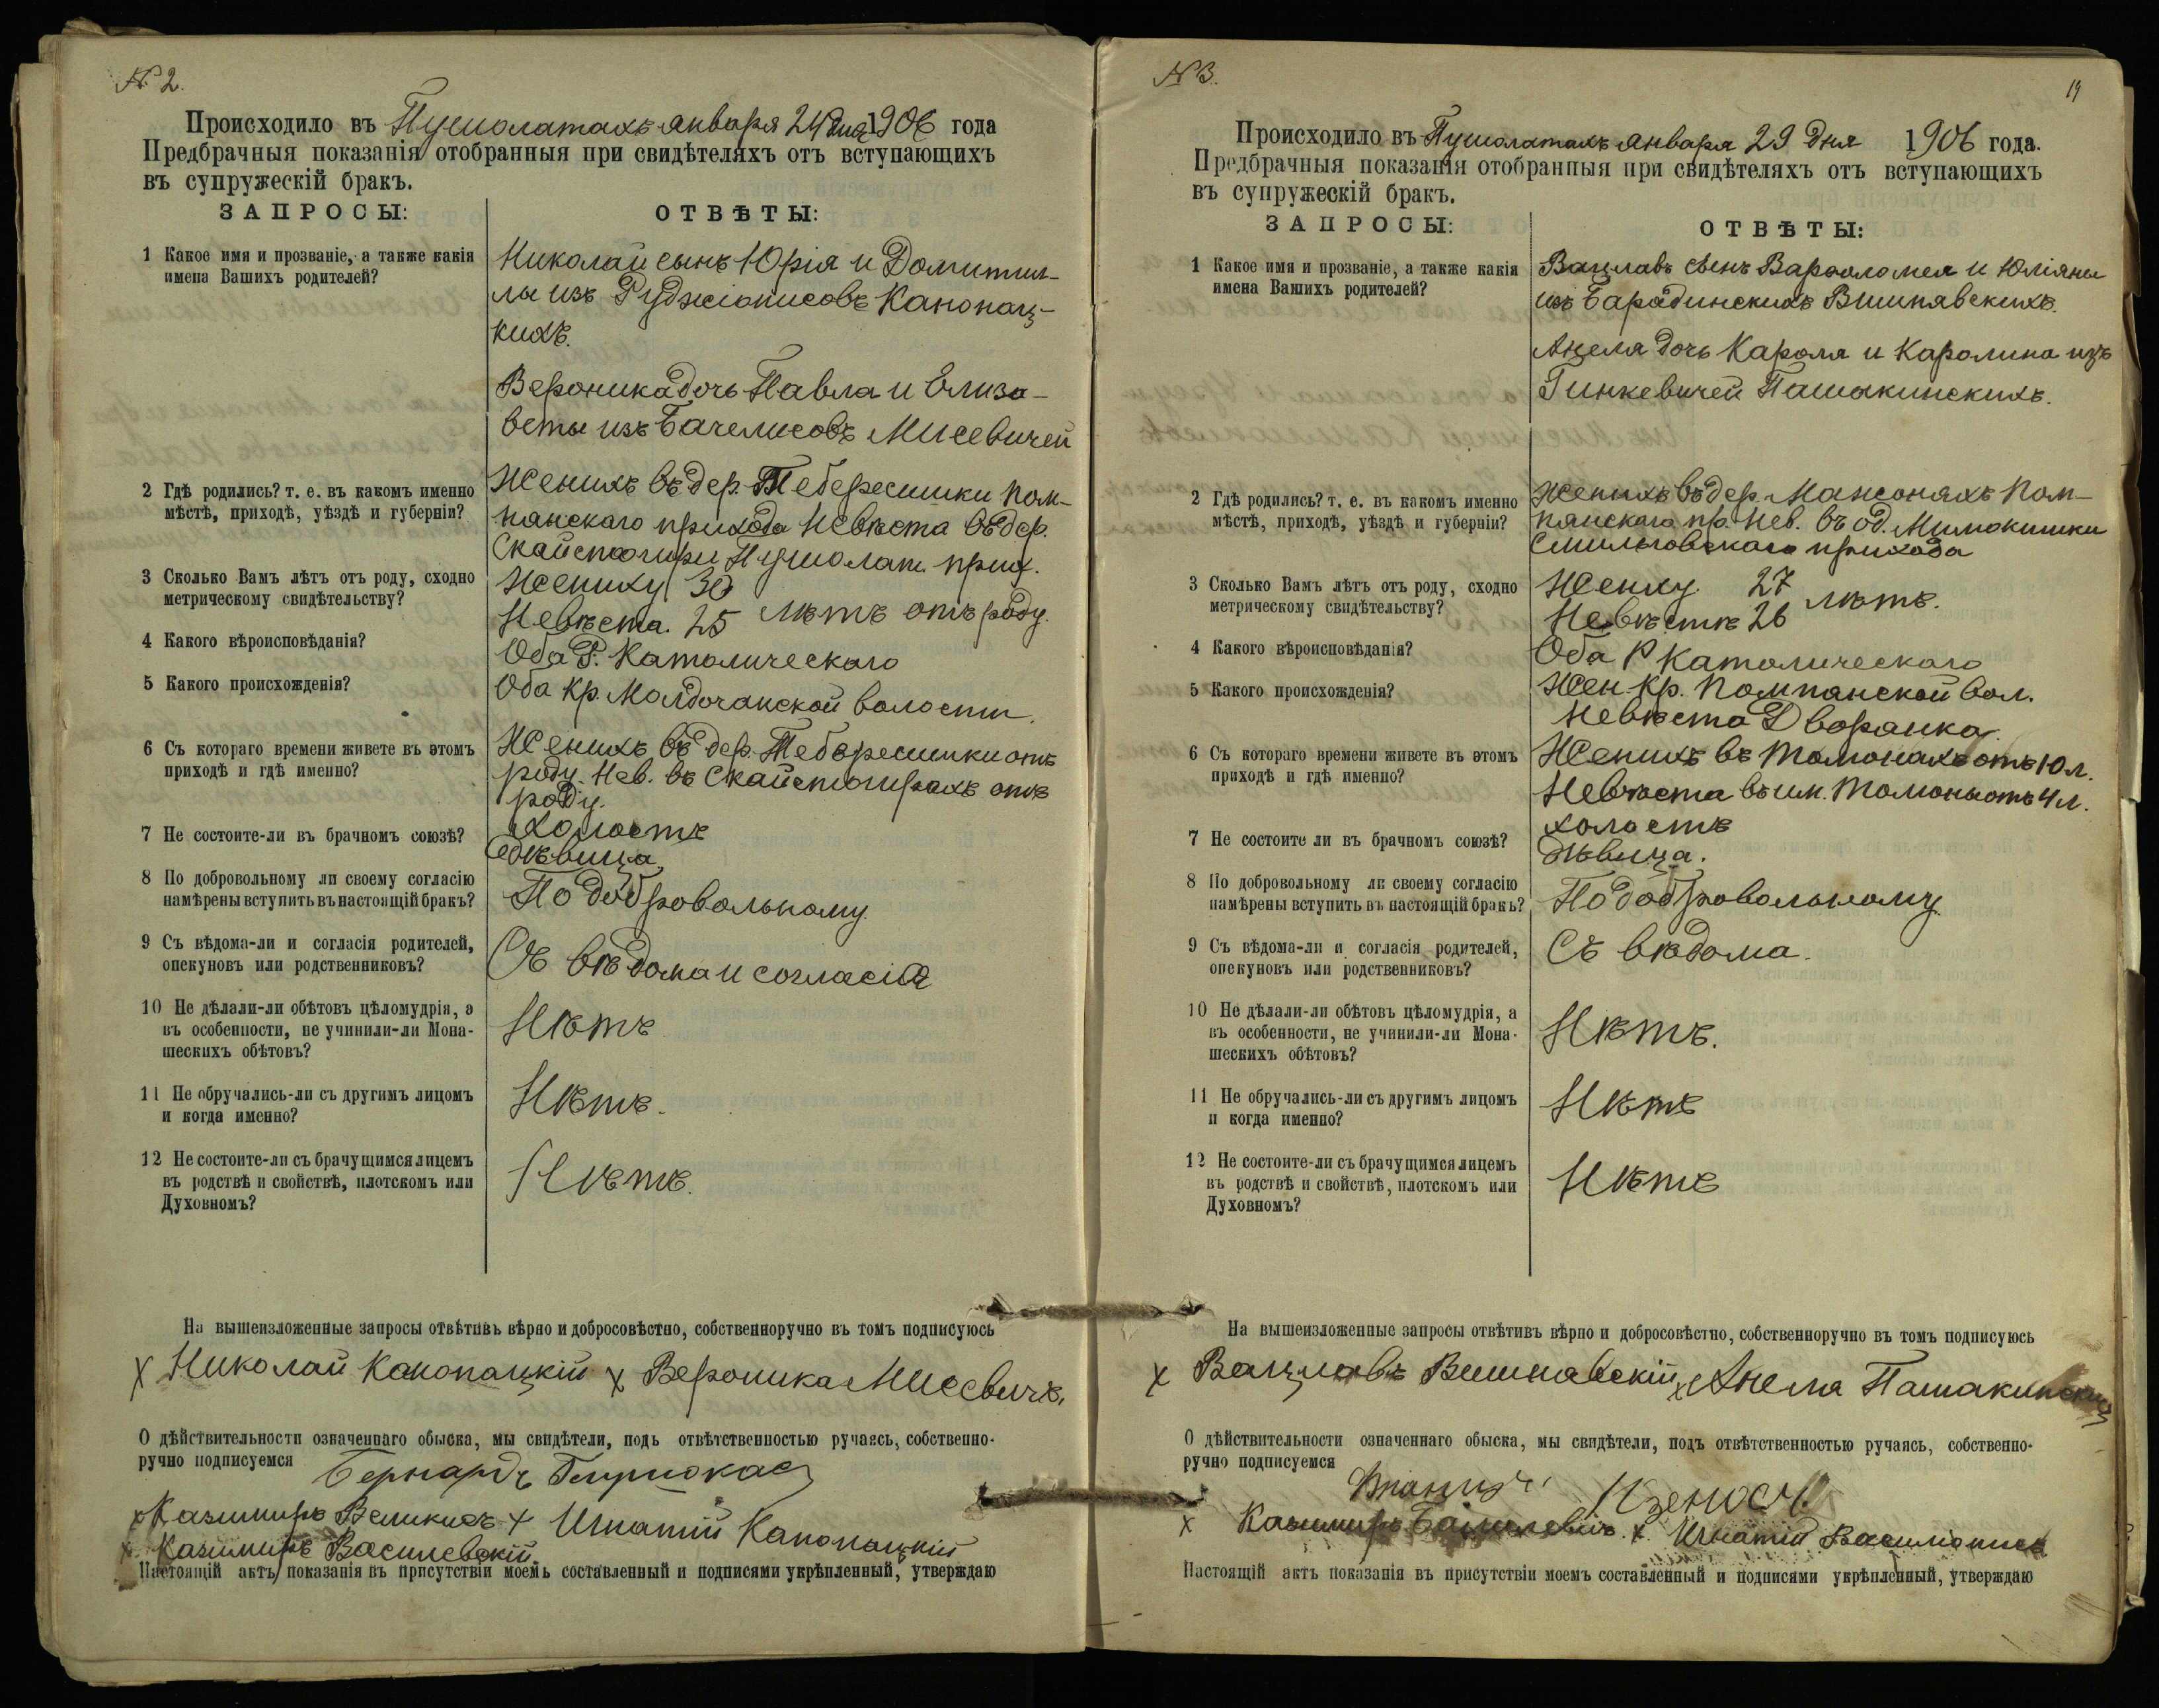 № 2.
Происходило въ Пушолатахъ января 24 дня 1906 года
Предбрачныя показанія отобранныя при свидѣтеляхъ отъ вступающихъ
въ супружескій бракъ.
ЗАПРОСЫ: ОТВѢТЫ:
1 Какое имя и прозваніе, а также какія
имена Вашихъ родителей?
Николай сынъ Юрія и Домитил-
лы изъ Руджіонисовъ Канопац-
кихъ.
Вероника дочь Павла и Елиза-
веты изъ Бачелисовъ Мисевичей
2 Гдѣ родились? т. е. въ какомъ именно
мѣстѣ, приходѣ, уѣздѣ и губерніи?
Женихъ въ дер. Теберешишки Пом-
пянскаго прихода Невѣста въ дер.
Скайстогири Пушолат. прих.
3 Сколько Вамъ лѣтъ отъ роду, сходно
метрическому свидѣтельству?
Жениху 30
Невѣста. 25 лѣтъ отъ роду.
4 Какого вѣроисповѣданія?
Оба Р. Католическаго
5 Какого происхожденія?
Оба кр. Молдочанской волости.
6 Съ котораго времени живете въ этомъ
приходѣ и гдѣ именно?
Женихъ въ дер. отъ
роду. Нев. въ Скайстогирахъ отъ
роду.
7 Не состоите-ли въ брачномъ союзѣ?
Холостъ
дѣвица
8 По добровольному ли своему согласію
намѣрены вступить въ настоящій бракъ?
По добровольному.
9 Съ вѣдома-ли и согласія родителей,
опекуновъ или родственниковъ?
Съ вѣдома и согласія
10 Не дѣлали-ли обѣтовъ цѣломудрія, а
въ особенности, не учинили-ли Мона-
шескихъ обѣтовъ?
Нѣтъ
11 Не обручались-ли съ другимъ лицомъ
и когда именно?
Нѣтъ.
12 Не состоите-ли съ брачущимся лицемъ
въ родствѣ и свойствѣ, плотскомъ или
Духовномъ?
Нѣтъ.
На вышеизложенные запросы отвѣтивъ вѣрно и добросовѣстно, собственноручно въ томъ подписуюсь
х Николай Канопацкій х Вероника Мисевичъ.
О дѣйствительности означеннаго обыска, мы свидѣтели, подъ отвѣтственностью ручаясь, собственно-
ручно подписуемся Бернардъ
х Казимиръ х Игнатій Канопацкій
х Казимиръ Василевскій.
Настоящій актъ показанія въ присутствіи моемъ составленный и подписями укрѣпленный, утверждаю
№ 3.
19
Происходило въ Пушолатахъ января 29 дня 1906 года.
Предбрачныя показанія отобранныя при свидѣтеляхъ отъ вступающихъ
въ супружескій бракъ.
ЗАПРОСЫ: ОТВѢТЫ:
1 Какое имя и прозваніе, а также какія
имена Вашихъ родителей?
Вацлавъ сынъ Варѳоломея и Юліяны
изъ Барадинскихъ Вишнявскихъ.
Анеля дочь Кароля и Каролина изъ
Гинкевичей Пашакинскихъ.
2 Гдѣ родились? т. е. въ какомъ именно
мѣстѣ, приходѣ, уѣздѣ и губерніи?
Женихъ въ дер. Мансоняхъ Пом-
пянскаго пр. Нев. въ од. Милюкишки
Смильговскаго прихода
3 Сколько Вамъ лѣтъ отъ роду, сходно
метрическому свидѣтельству?
Жениху 27
Невѣстѣ 26 лѣтъ.
4 Какого вѣроисповѣданія?
Оба Р Католическаго
5 Какого происхожденія?
Жен. кр. Помпянской вол.
Невѣста Дворянка.
6 Съ котораго времени живете въ этомъ
приходѣ и гдѣ именно?
Женихъ въ Томонахъ отъ 10 л.
Невѣста въ им. Томоны отъ 4 л.
7 Не состоите ли въ брачномъ союзѣ?
холостъ
дѣвица.
8 По добровольному ли своему согласію
намѣрены вступить въ настоящій бракъ?
По добровольному.
9 Съ вѣдома-ли и согласія родителей,
опекуновъ или родственниковъ?
Съ вѣдома.
10 Не дѣлали-ли обѣтовъ цѣломудрія, а
въ особенности, не учинили-ли Мона-
шескихъ обѣтовъ?
Нѣтъ.
11 Не обручались-ли съ другимъ лицомъ
и когда именно?
Нѣтъ
12 Не состоите-ли съ брачущимся лицемъ
въ родствѣ и свойствѣ, плотскомъ или
Духовномъ?
Нѣтъ
На вышеизложенные запросы отвѣтивъ вѣрно и добросовѣстно, собственноручно въ томъ подписуюсь
х Вацлавъ Вишнавскій х Анеля
О дѣйствительности означеннаго обыска, мы свидѣтели, подъ отвѣтственностью ручаясь, собственно-
ручно подписуемся
х Казимиръ х Игнатій
Настоящій актъ показанія въ присутствіи моемъ составленный и подписями укрѣпленный, утверждаю